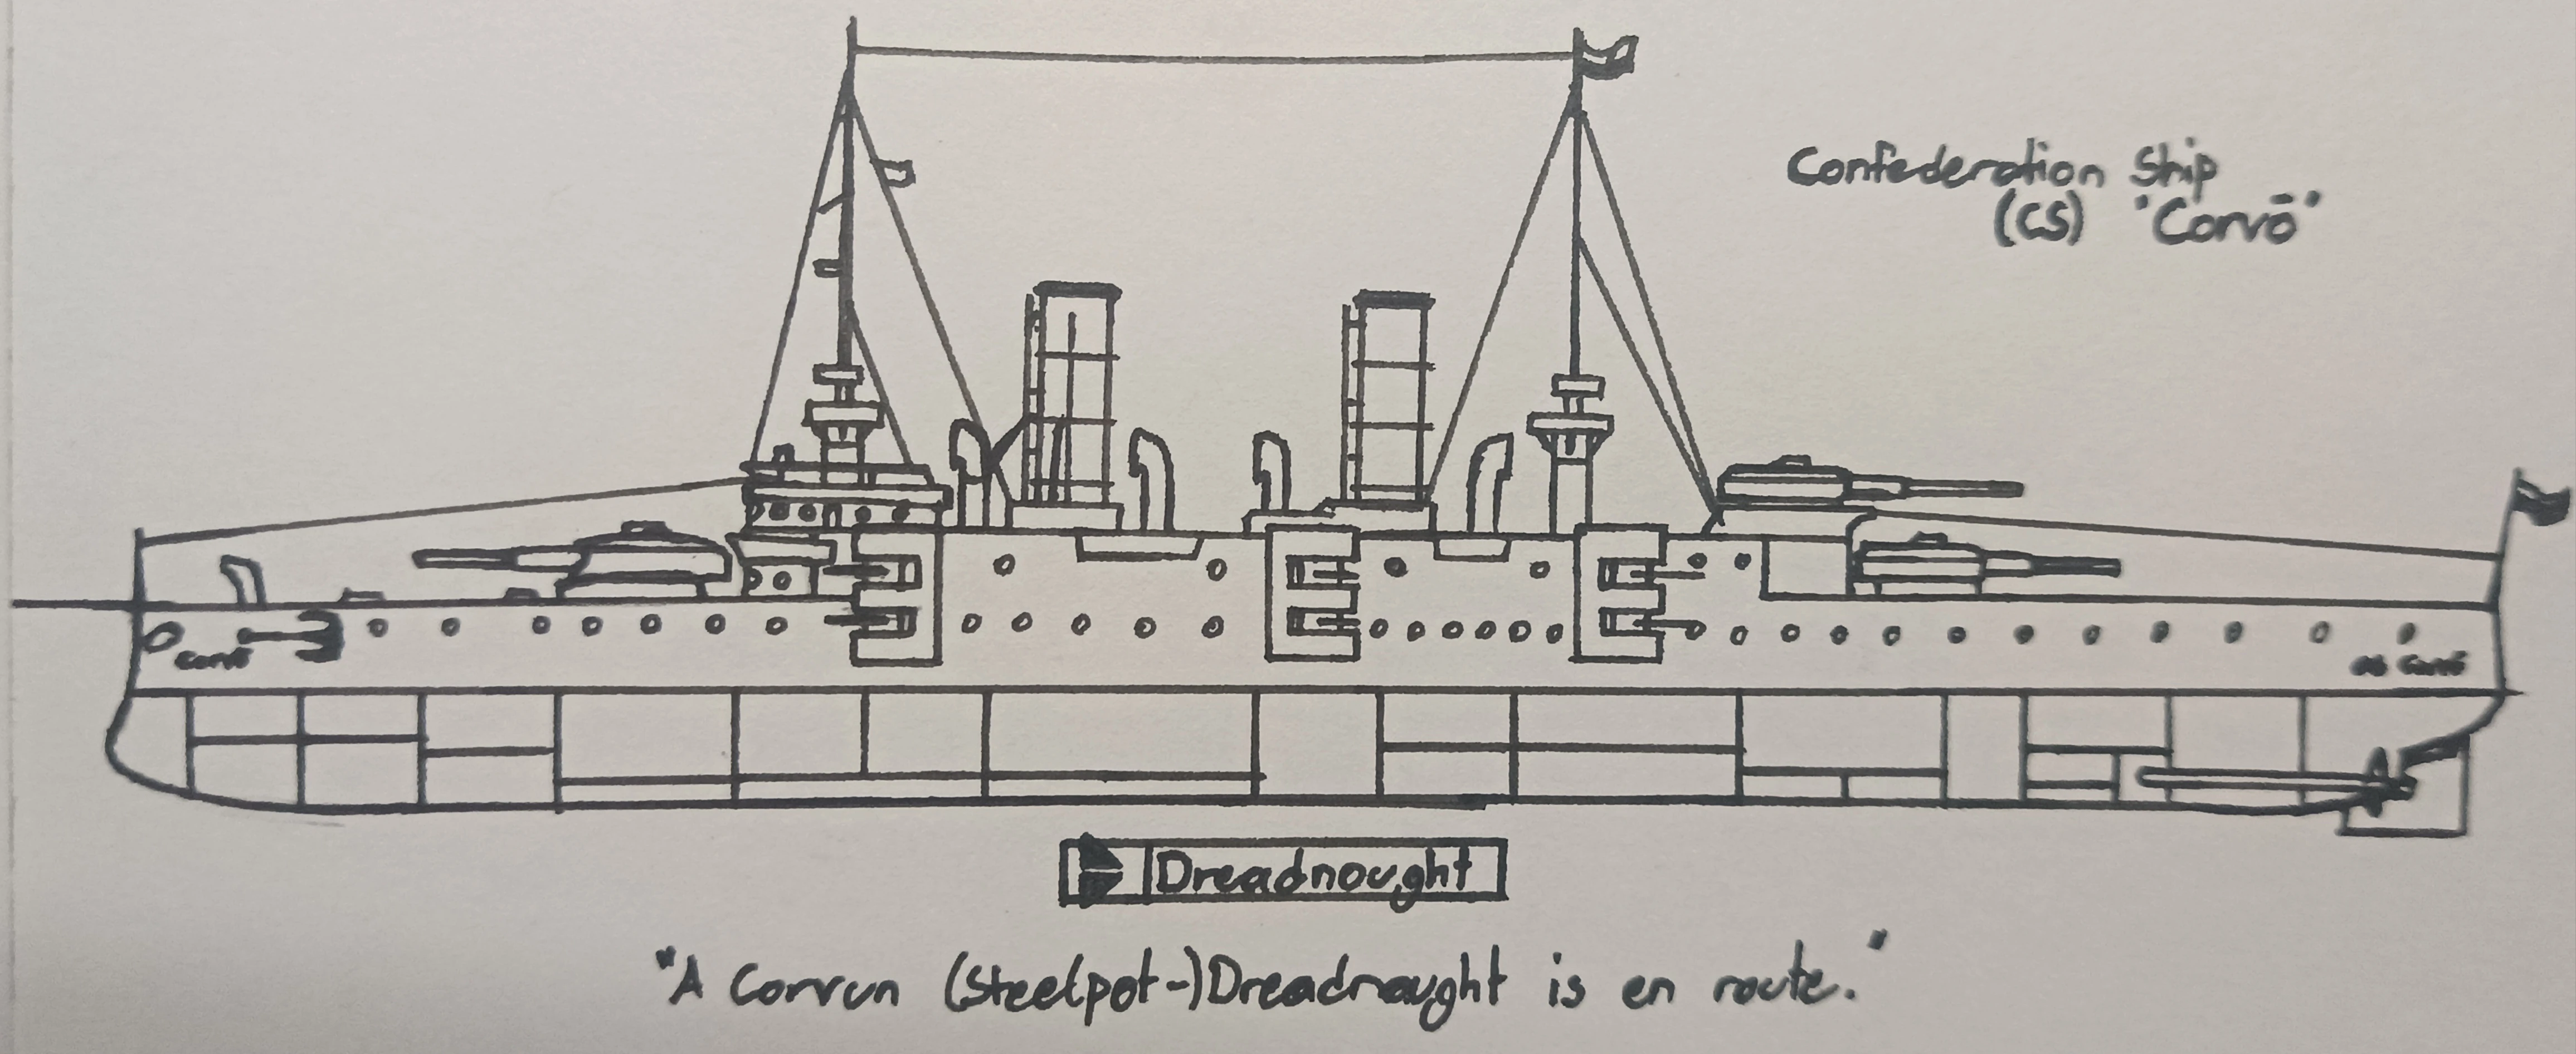 Confederation Ship
(CS) "Corvō"
Corvō
CS Corvō
Dreadnought
"A Corvun (Steelpot-)Dreadnought is en route."